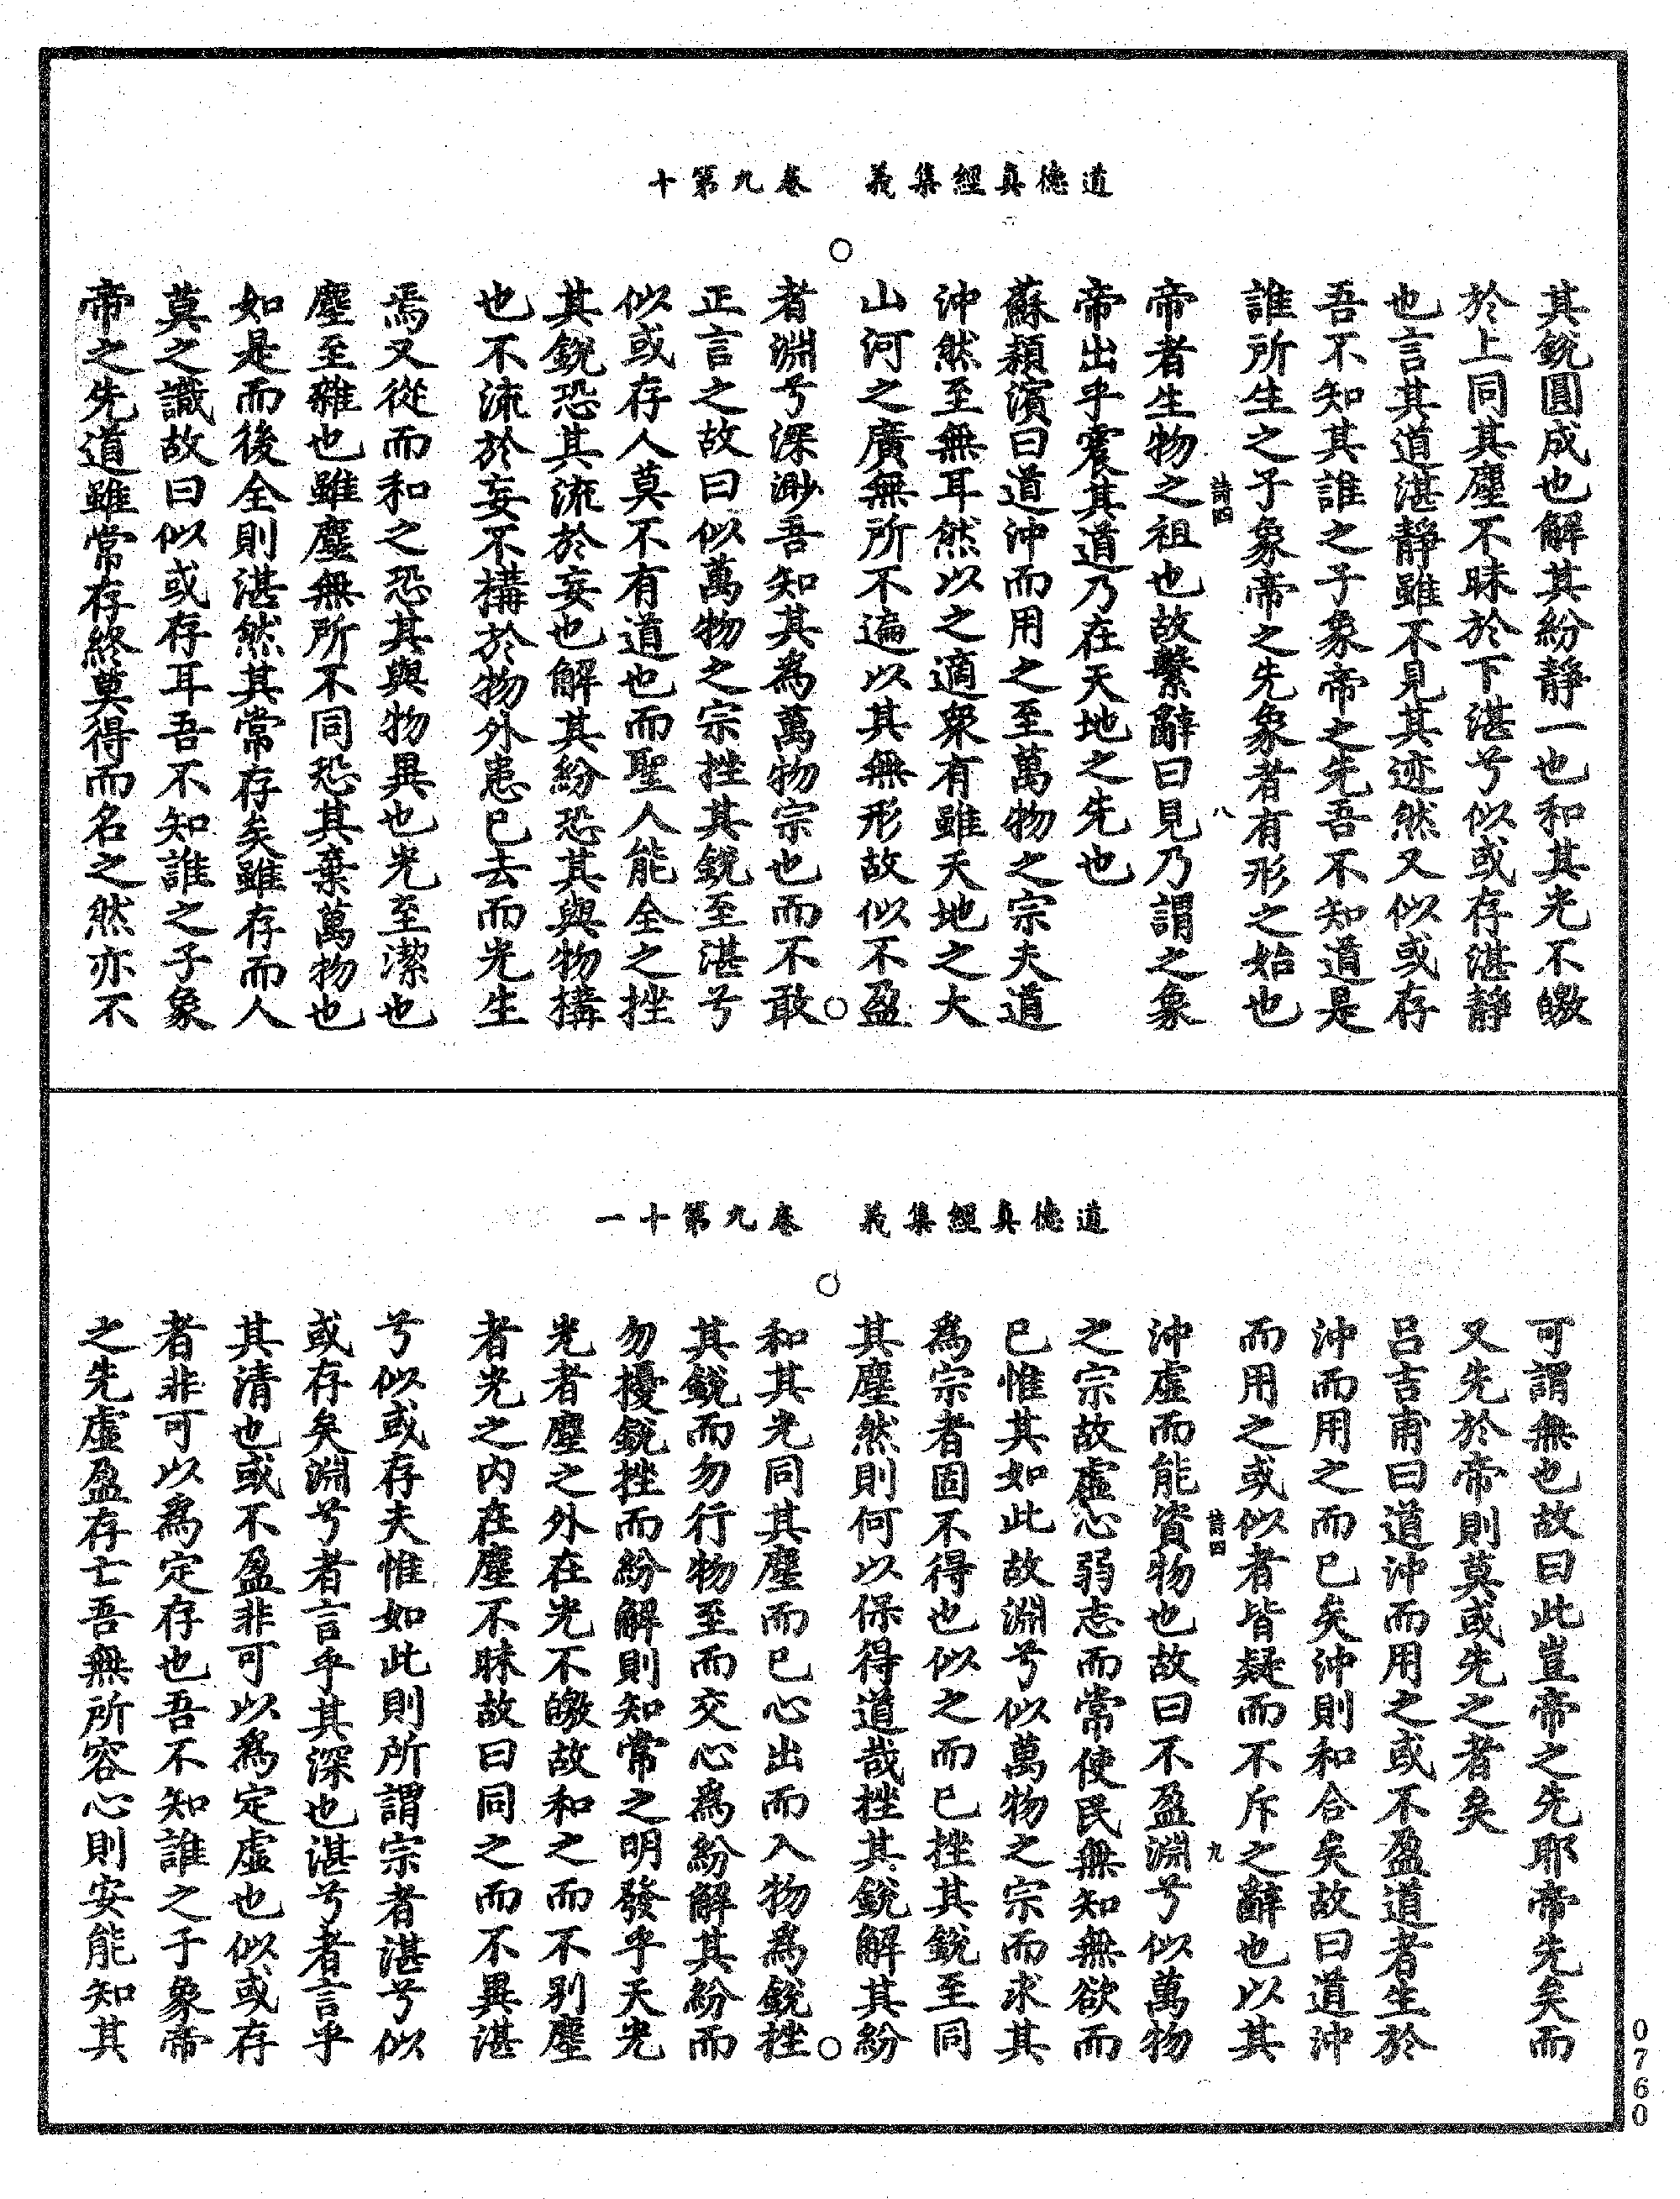 道德真經集義　卷九第十
其銳圓成也解其紛靜一也和其光不皦
於上同其塵不昧於下湛兮似或存湛靜
也言其道湛靜雖不見其迹然又似或存
吾不知其誰之子象帝之先吾不知道是
誰所生之子象帝之先象者有形之始也
帝者生物之祖也故繫辭曰見乃謂之象
帝出乎震其道乃在天地之先也
蘇潁濱曰道沖而用之至萬物之宗夫道
沖然至無耳然以之適衆有雖天地之大
山河之廣無所不遍以其無形故似不盈
者淵兮深渺吾知其為萬物宗也而不敢
正言之故曰似萬物之宗挫其銳至湛兮
似或存人莫不有道也而聖人能全之挫
其銳恐其流於妄也解其紛恐其與物搆
也不流於妄不搆於物外患已去而光生
焉又從而和之恐其與物異也光至潔也
塵至雜也雖塵無所不同恐其棄萬物也
如是而後全則湛然其常存矣雖存而人
莫之識故曰似或存耳吾不知誰之子象
帝之先道雖常存終莫得而名之然亦不
詩四
八
道德真經集義　卷九第十一
可謂無也故曰此豈帝之先耶帝先矣而
又先於帝則莫或先之者矣
呂吉甫曰道沖而用之或不盈道者生於
沖而用之而已矣沖則和合矣故曰道沖
而用之或似者皆疑而不斥之辭也以其
沖虛而能資物也故曰不盈淵兮似萬物
之宗故虛心弱志而常使民無知無欲而
已惟其如此故淵兮似萬物之宗而求其
為宗者固不得也似之而已挫其銳至同
其塵然則何以保得道哉挫其銳解其紛
和其光同其塵而已心出而入物為銳挫
其銳而勿行物至而交心為紛解其紛而
勿擾銳挫而紛解則知常之明發乎天光
光者塵之外在光不皦故和之而不别塵
者光之内在塵不昧故曰同之而不異湛
兮似或存夫惟如此則所謂宗者湛兮似
或存矣淵兮者言乎其深也湛兮者言乎
其清也或不盈非可以為定虛也似或存
者非可以為定存也吾不知誰之子象帝
之先虛盈存亡吾無所容心則安能知其
詩四
九
0760